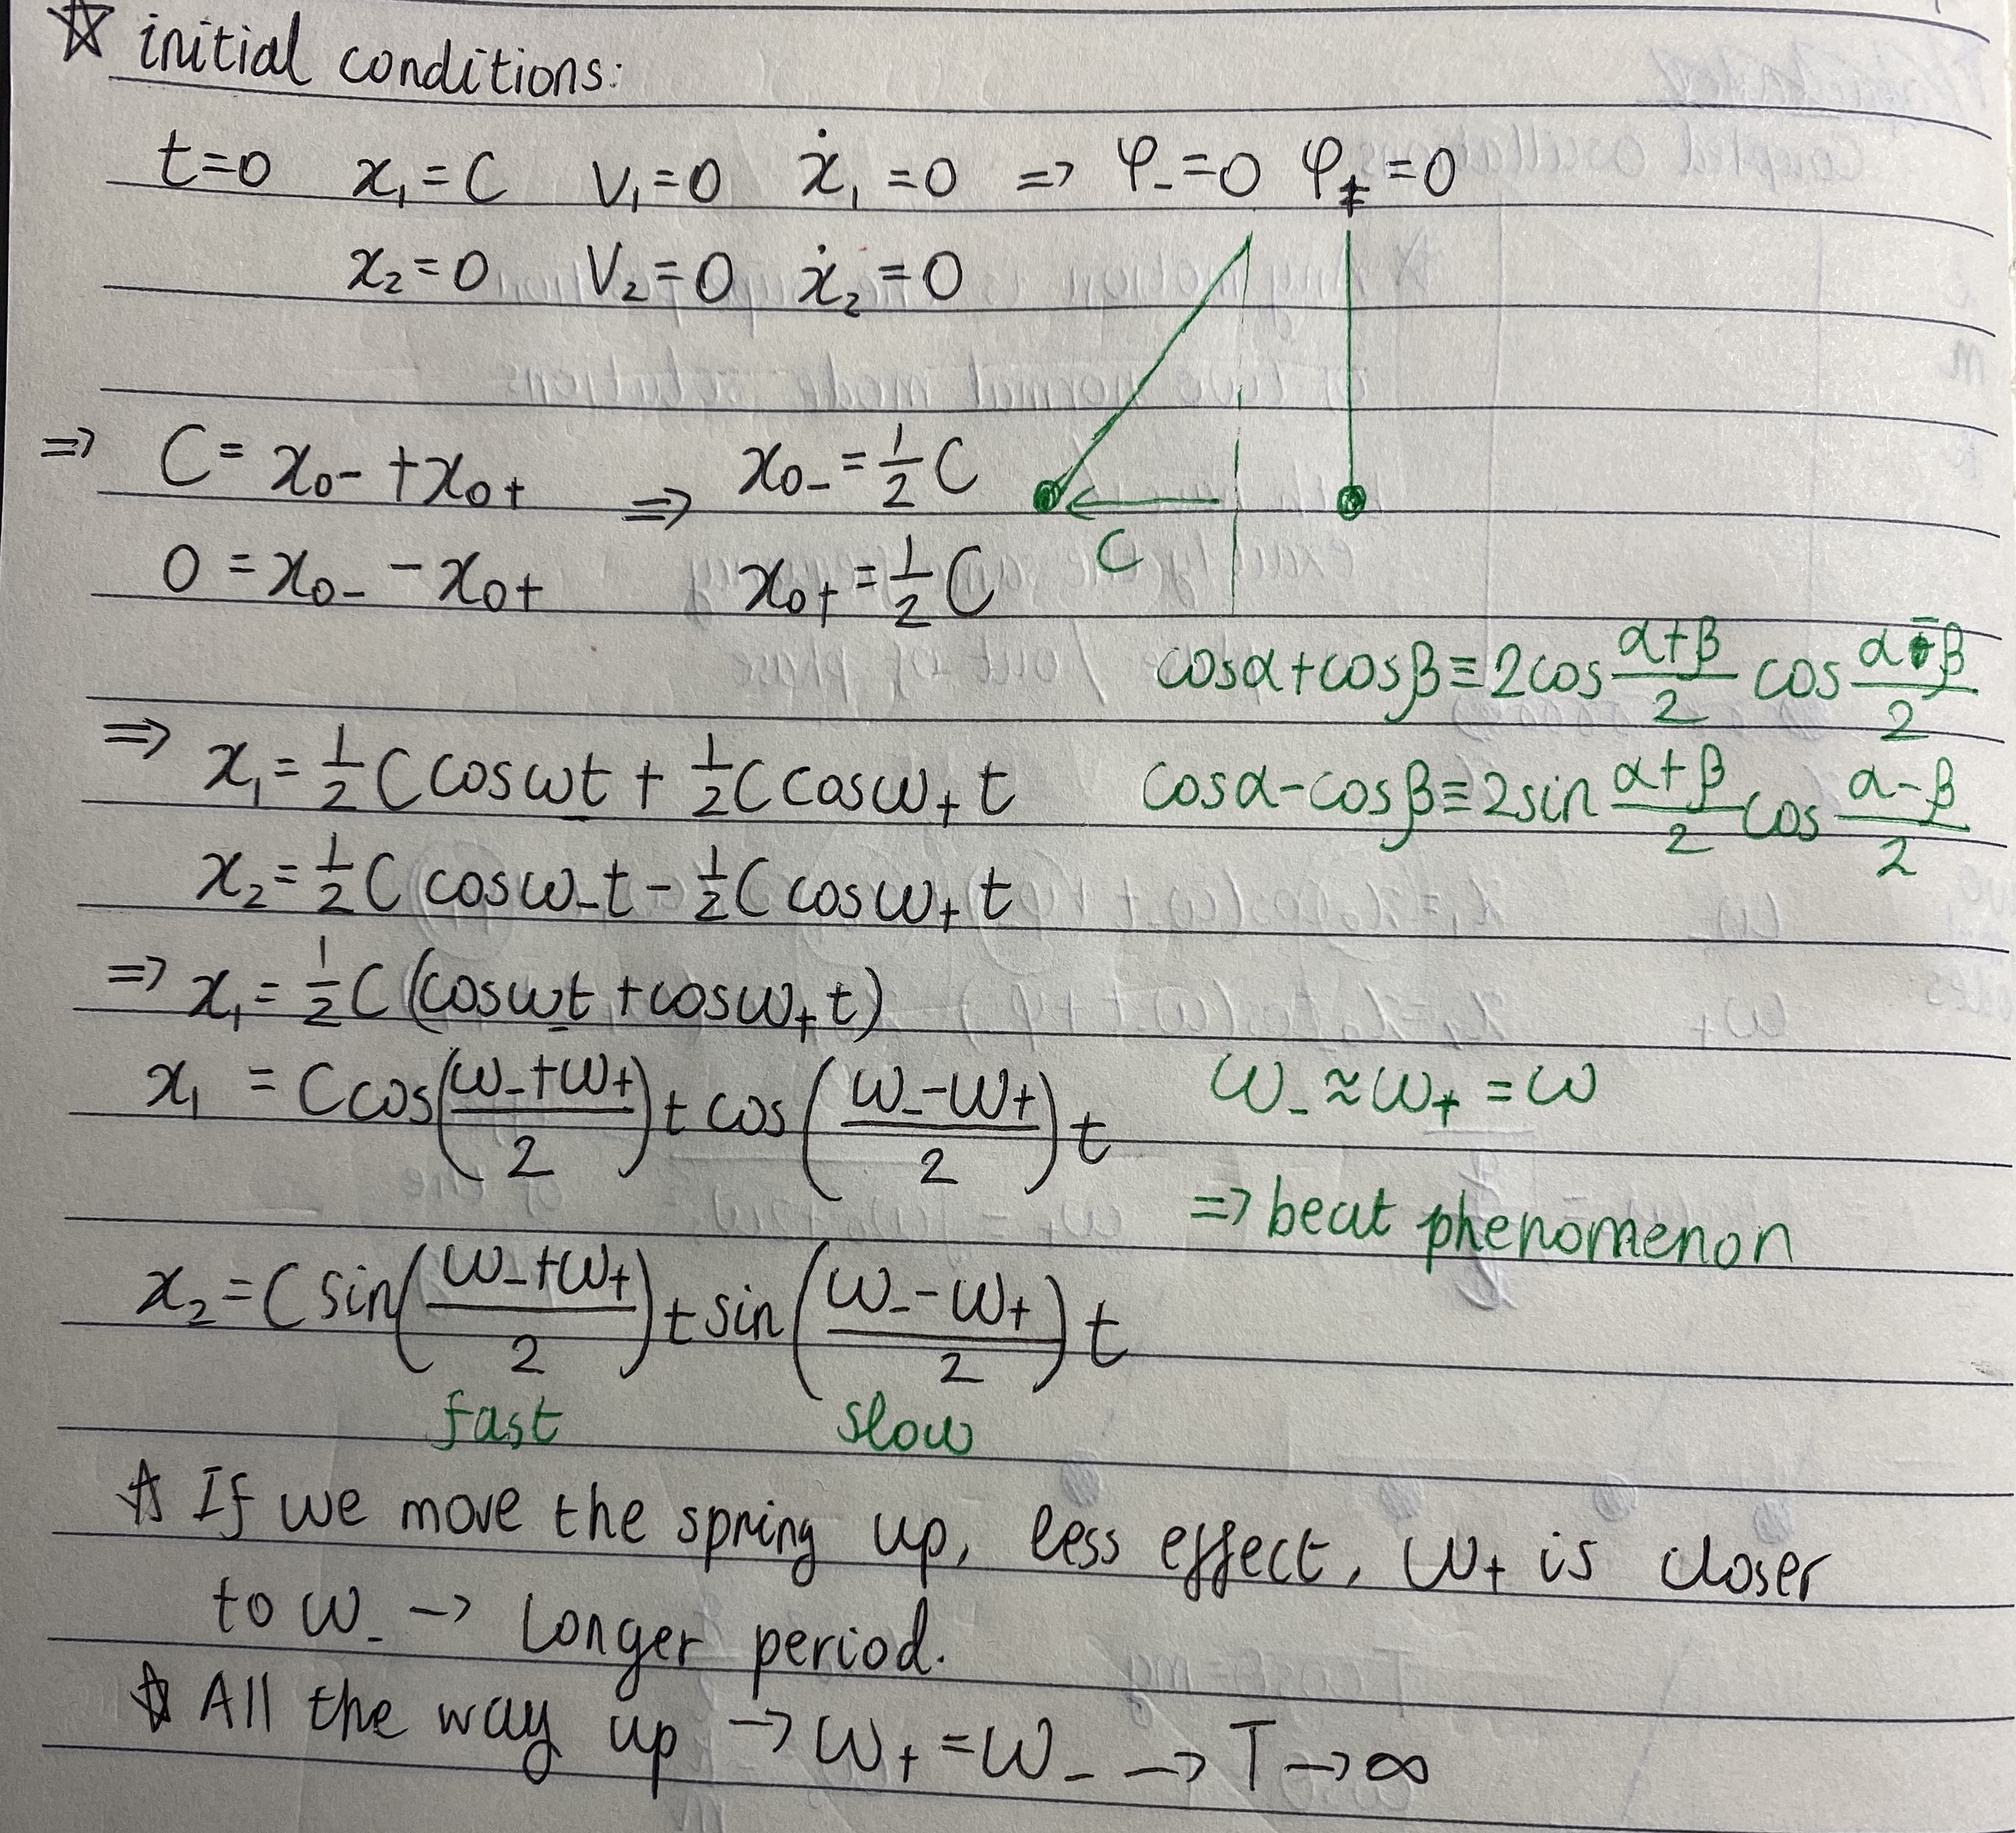 ☆ initial conditions:
t=0 x₁=C v₁=0 ẋ₁=0 => φ₋=0 φ₊=0
x₂=0 V₂=0 ẋ₂=0
=> C= x₀₋ + x₀₊ => x₀₋ = 1/2 C
0 = x₀₋ - x₀₊ x₀₊ = 1/2 C
C
cosα+cosβ≡2cos (α+β)/2 cos (α-β)/2
=> x₁= 1/2 C cosω₋t + 1/2 C cosω₊t
cosα-cosβ≡2sin (α+β)/2 cos (α-β)/2
x₂= 1/2 C cosω₋t - 1/2 C cosω₊t
=> x₁= 1/2 C (cosω₋t + cosω₊t)
x₁ = C cos((ω₋+ω₊)/2)t cos((ω₋-ω₊)/2)t
ω₋≈ω₊=ω
=> beat phenomenon
x₂= C sin((ω₋+ω₊)/2)t sin((ω₋-ω₊)/2)t
fast slow
☆ If we move the spring up, less effect, ω₊ is closer
to ω₋ -> Longer period.
☆ All the way up -> ω₊=ω₋ -> T->∞